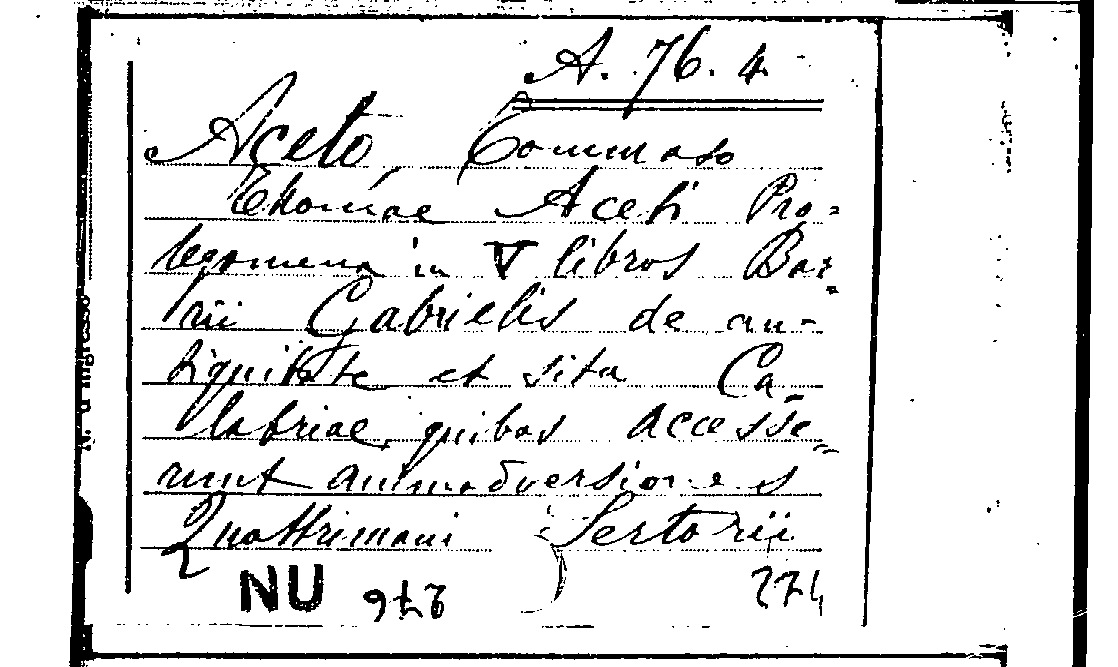 A. 76. 4
Aceto, Tommaso
Thomae Aceti Pro=
legomena in V libros Bar=
rii Gabrielis de an-
tiquitate et situ Ca
labriae, quibus accesse=
runt animadversiones
Quattrimani Sertorii
NU 976
N. d'ingresso